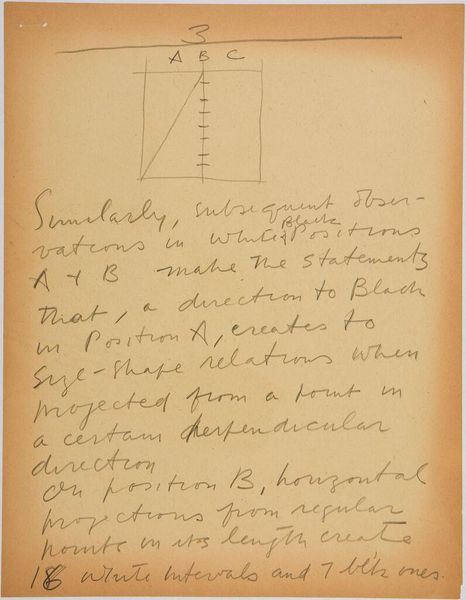 3
A B C
Similarly, subsequent obser-
vations in White Black Positions
A + B make the statements
that, a direction to Black
in Position A, creates to
size-shape relations when
projected from a point in
a certain perpendicular
direction
On position B, horizontal
projections from regular
points in its length create
white intervals and 7 bl'k ones.